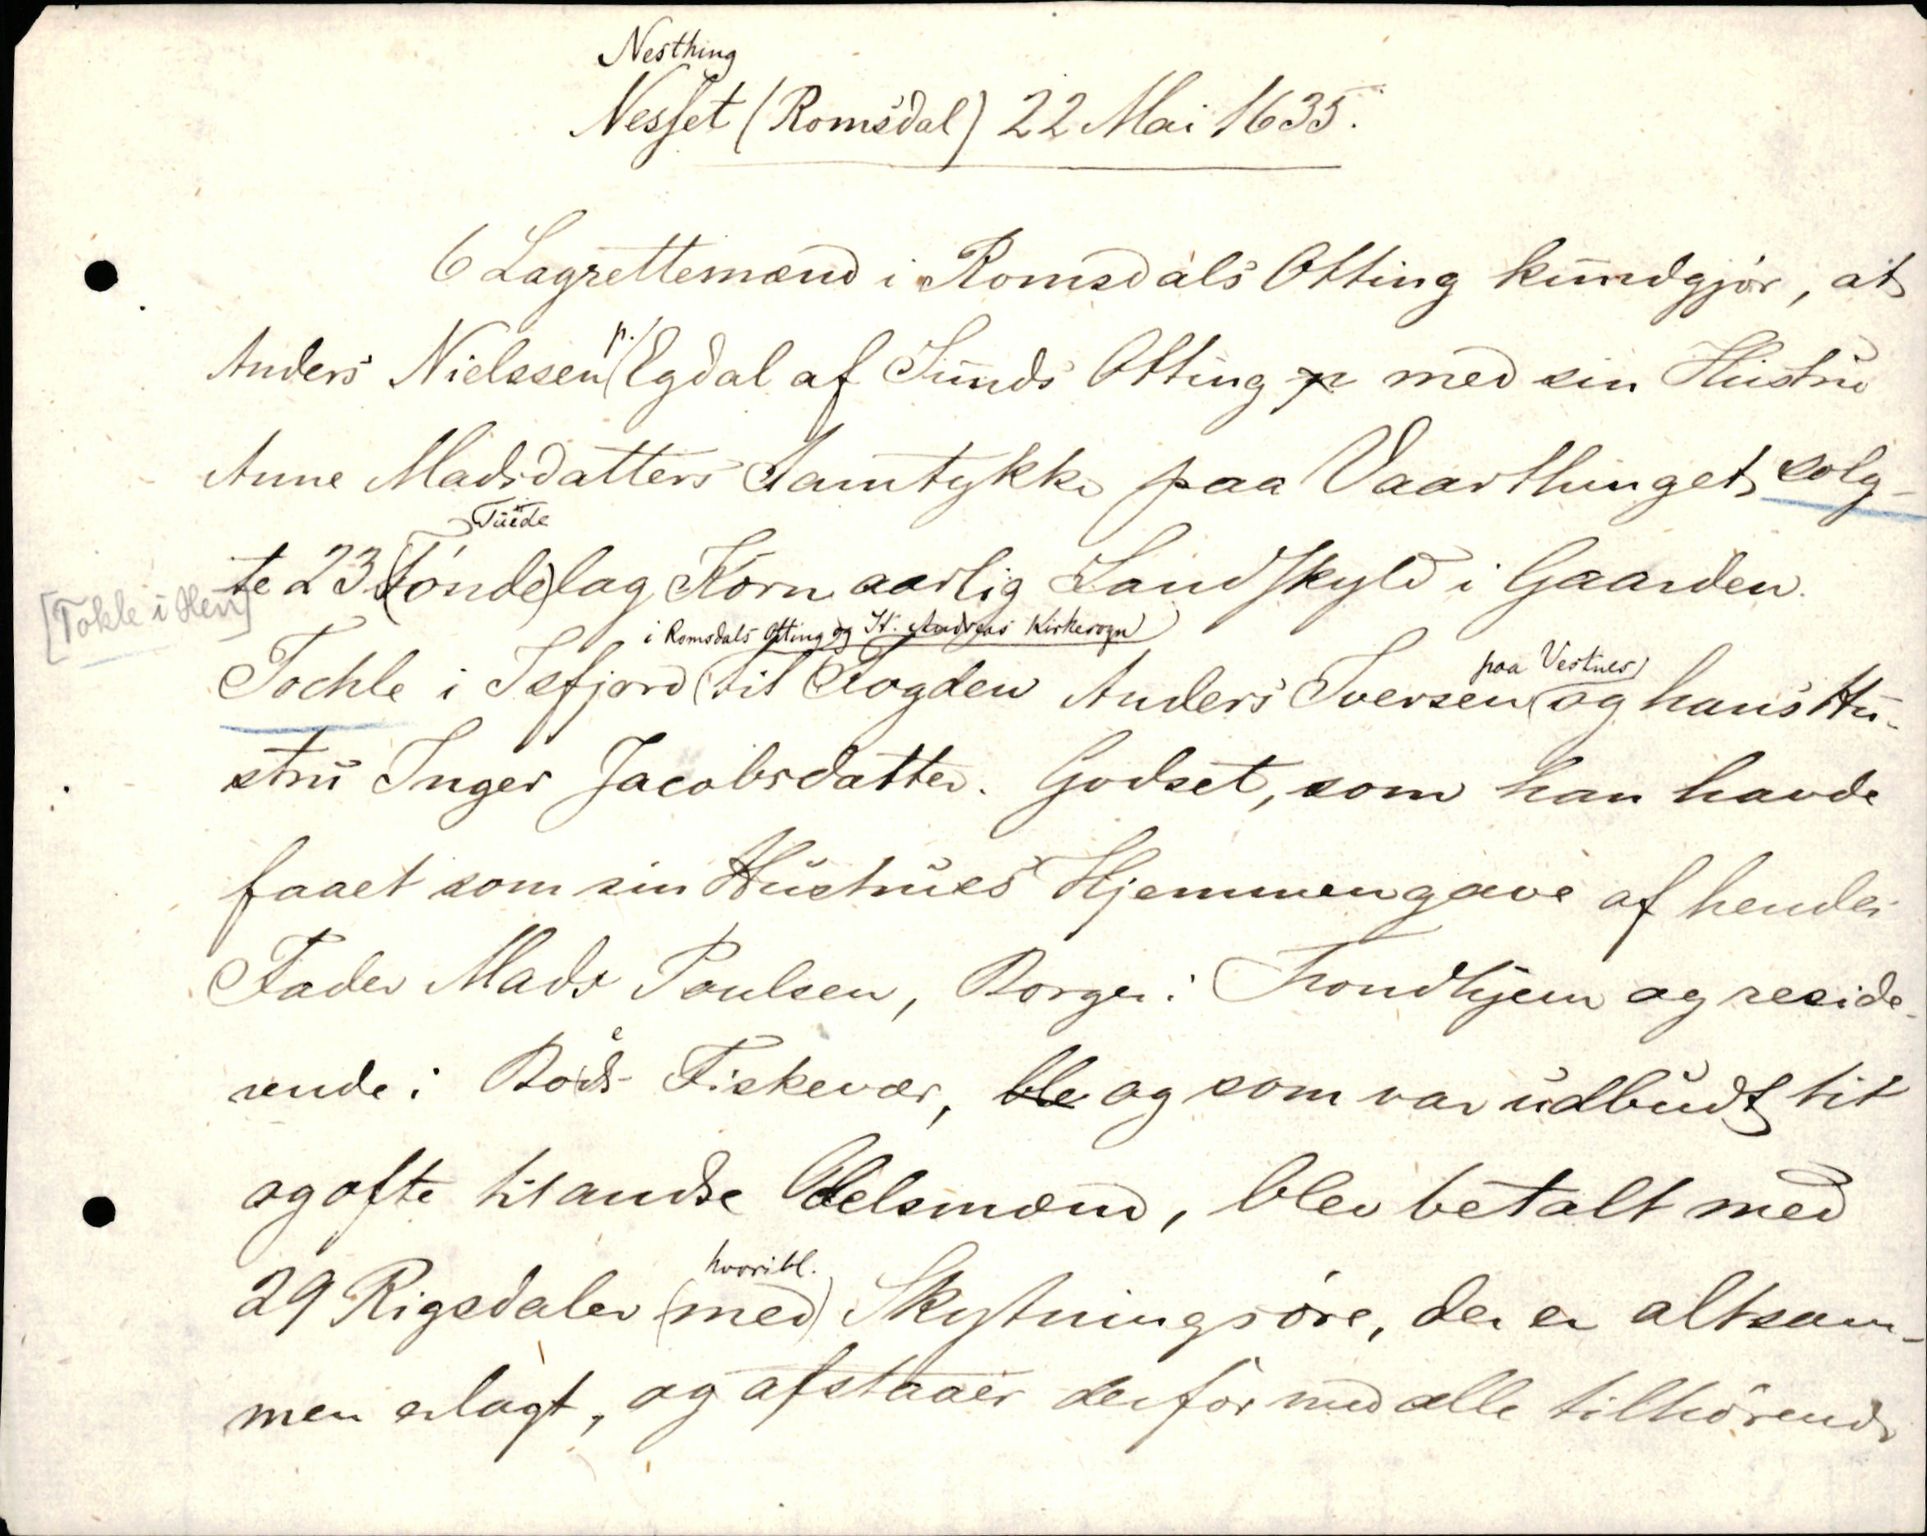 Nesthing
Nesset (Romsdal) 22 Mai 1635.
6 Lagrettemænd i Romsdals Otting kundgjör, at
Anders Nielssen p. Egdal af Sunds Otting med sin Hustru
Anne Madsdatters Samtykke paa Vaarthinget solg-
Tuede
te 23 (Tönde)lag Korn aarlig Landskyld i Gaarden
[Tokle i Hen]
i Romsdals Otting og St. Andreas Kirkesogn
paa Vestnes
Tochle i Isfjord til Fogden Anders Iversen og hans Hu-
stru Inger Jacobsdatter. Godset, som han havde
faaet som sin Hustrues Hjemmengave af hendes
Fader Mads Poulsen, Borger i Trondhjem og reside-
rende i Böds Fiskevær, ble og som var udbudt tit
og ofte til andre Odelsmænd, blev betalt med
hvoribl.
29 Rigsdaler (med) Skytningsöre, der er altsam-
men erlagt, og afstaaer derfor med alle tilhörende